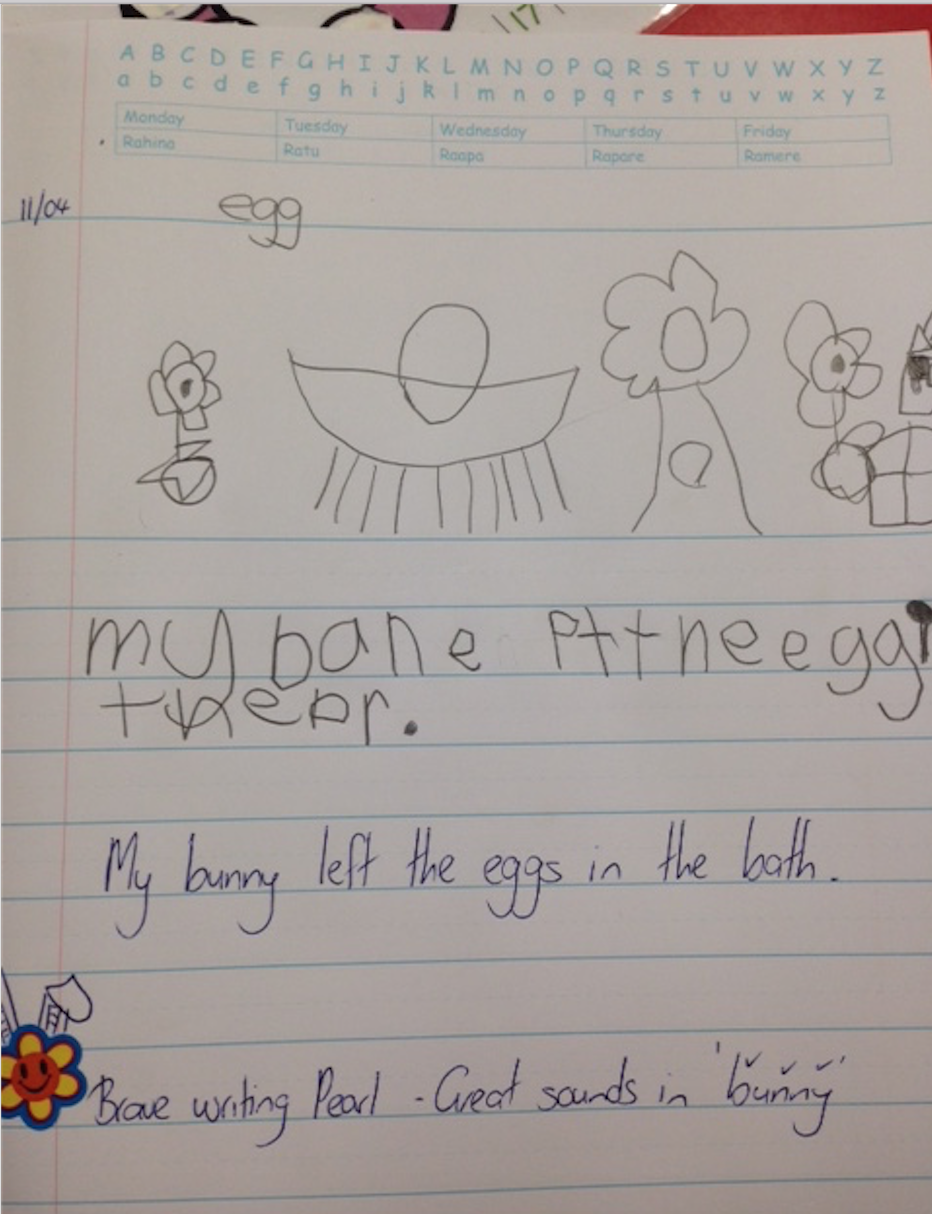 117
A B C D E F G H I J K L M N O P Q R S T U V W X Y Z
a b c d e f g h i j k l m n o p q r s t u v w x y z
Monday Tuesday Wednesday Thursday Friday
Rahina Ratu Raapa Rapare Ramere
11/04 egg
my bane Pttneegg
My bunny left the eggs in the bath.
Brave writing Pearl - Great sounds in 'bunny'